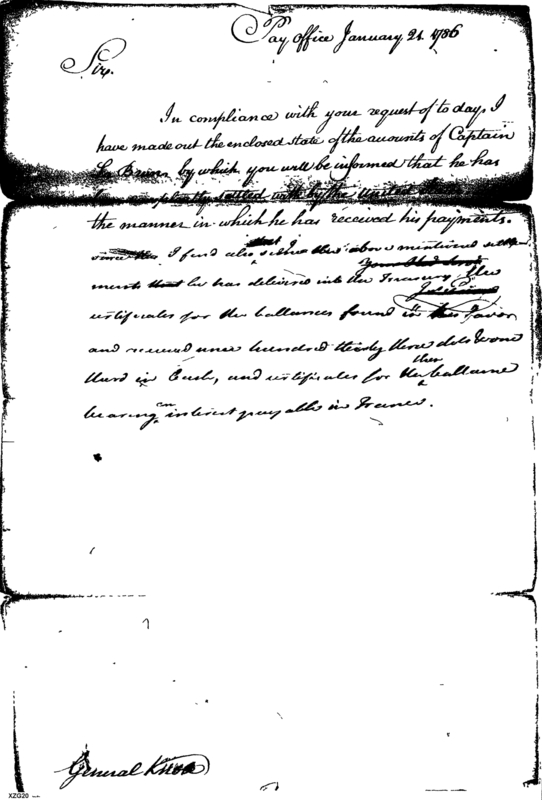 Pay Office January 21. 1786
Sir.
In compliance with your request of to day, I
have made out the enclosed state of the accounts of Captain
Le Brun by which you will be informed that he has
been compleatly settled with by the United States
the manner in which he has received his payments.
since this I find also that since the above mentioned settle
ments that he has delivered into the Treasury the
certificates for the ballances found in his Favor
and received one hundred thirty three dolls & one
third in Cash, and certificates for the then ballance
bearing an interest payable in France.
General Knox
XZG20